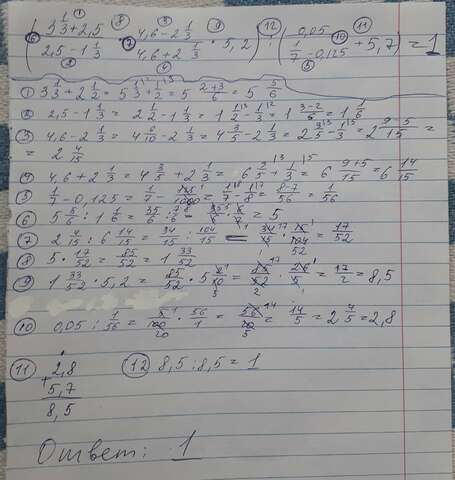 ( (3 1/3 + 2,5) / (2,5 - 1 1/3) · (4,6 - 2 1/3) / (4,6 + 2 1/3) · 5,2 ) : ( 0,05 / (1/7 - 0,125) + 5,7 ) = 1
① 3 1/3 + 2 1/2 = 5 1/3 + 1/2 = 5 (2+3)/6 = 5 5/6
② 2,5 - 1 1/3 = 2 1/2 - 1 1/3 = 1 1/2 - 1/3 = 1 (3-2)/6 = 1 1/6
③ 4,6 - 2 1/3 = 4 6/10 - 2 1/3 = 4 3/5 - 2 1/3 = 2 3/5 - 1/3 = 2 (9-5)/15 =
= 2 4/15
④ 4,6 + 2 1/3 = 4 3/5 + 2 1/3 = 6 3/5 + 1/3 = 6 (9+5)/15 = 6 14/15
⑤ 1/7 - 0,125 = 1/7 - 125/1000 = 1/7 - 1/8 = (8-7)/56 = 1/56
⑥ 5 5/6 : 1 1/6 = 35/6 : 7/6 = 35/6 · 6/7 = 5
⑦ 2 4/15 : 6 14/15 = 34/15 : 104/15 = 34/15 · 15/104 = 17/52
⑧ 5 · 17/52 = 85/52 = 1 33/52
⑨ 1 33/52 · 5,2 = 85/52 · 5 2/10 = 85/52 · 26/5 = 17/2 = 8,5
⑩ 0,05 : 1/56 = 5/100 · 56/1 = 56/20 = 14/5 = 2 4/5 = 2,8
⑪ 2,8 ⑫ 8,5 : 8,5 = 1
+ 5,7
8,5
Ответ: 1